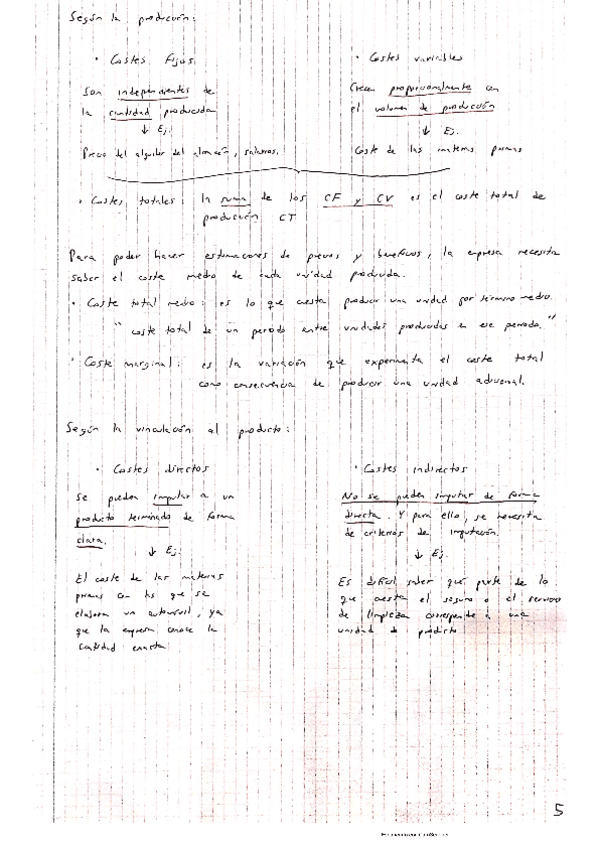 Según la producción:
· Costes fijos.
Son independientes de
la cantidad producida
↓ Ej:
Precio del alquiler del almacén, salarios.
· Costes variables
Crecen proporcionalmente con
el volumen de producción
↓ Ej:
Coste de las materias primas
· Costes totales: la suma de los CF y CV es el coste total de
producción CT
Para poder hacer estimaciones de precios y beneficios, la empresa necesita
saber el coste medio de cada unidad producida.
· Coste total medio: es lo que cuesta producir una unidad por término medio.
"coste total de un periodo entre unidades producidas en ese periodo."
· Coste marginal: es la variación que experimenta el coste total
como consecuencia de producir una unidad adicional.
Según la vinculación al producto:
· Costes directos
Se pueden imputar a un
producto terminado de forma
clara.
↓ Ej:
El coste de las materias
primas con las que se
elabora un automóvil, ya
que la empresa conoce la
cantidad exacta
· Costes indirectos
No se pueden imputar de forma
directa. Y para ello, se necesita
de criterios de imputación.
↓ Ej:
Es difícil saber qué parte de lo
que cuesta el seguro o el servicio
de limpieza corresponde a una
unidad de producto
5